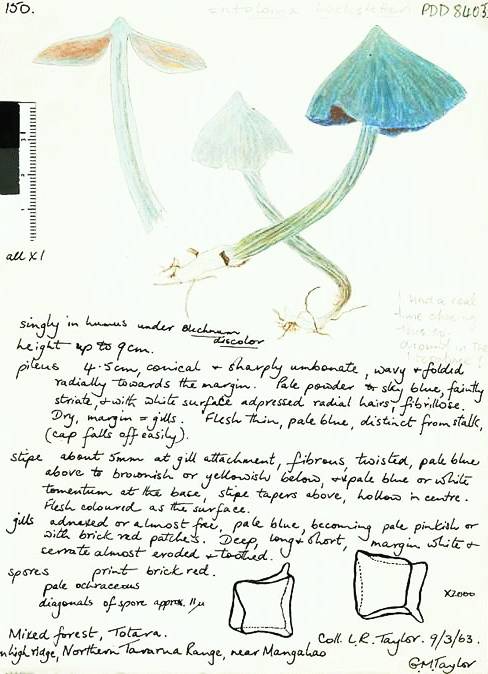 150.
entoloma hochstetteri
PDD 8403
all x 1
I had a real
time chasing
this to
ground in the
singly in humus under Blechnum
discolor
height up to 9cm.
pileus 4.5cm, conical & sharply umbonate, wavy & folded
radially towards the margin. Pale powder to sky blue, faintly
striate, & with white surface adpressed radial hairs, fibrillose.
Dry, margin = gills. Flesh thin, pale blue, distinct from stalk,
(cap falls off easily).
stipe about 5mm at gill attachment, fibrous, twisted, pale blue
above to brownish or yellowish below, & pale blue or white
tomentum at the base, stipe tapers above, hollow in centre.
Flesh coloured as the surface.
gills adnexed or almost free, pale blue, becoming pale pinkish or
with brick red patches. Deep, long & short, margin white &
serrate almost eroded & toothed.
spores print brick red.
pale ochraceous
diagonals of spore approx. 11µ
x2000
Mixed forest, Totara.
Coll. L.R. Taylor. 9/3/63.
high ridge, Northern Tararua Range, near Mangahao
G.M. Taylor